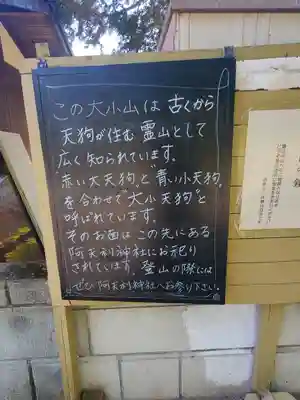 この大小山は古くから
天狗が住む霊山として
広く知られています。
"赤い大天狗"と"青い小天狗"
を合わせて"大小天狗"と
呼ばれています。
そのお面はこの先にある
阿夫利神社にお祀り
されています。登山の際には
ぜひ阿夫利神社へお参り下さい。